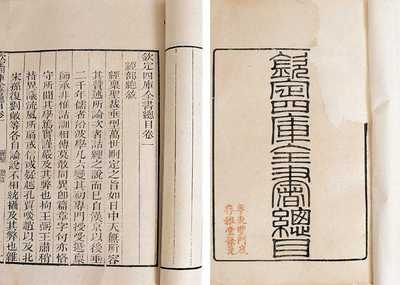 欽定四庫全書總目
欽定四庫全書總目卷一
經部總敘
經稟聖裁垂型萬世刪定之旨如日中天無所容
其贊述所論次者詁經之說而已自漢京以後垂
二千年儒者沿波學凡六變其初專門授受遞稟
師承非惟詁訓相傳莫敢同異即篇章字句亦恪
守所聞其學篤實謹嚴及其弊也拘王弼王肅稍
持異議流風所扇或信或疑越孔賈啖趙以及北
宋孫復劉敞等各自論說不相統攝及其弊也雜